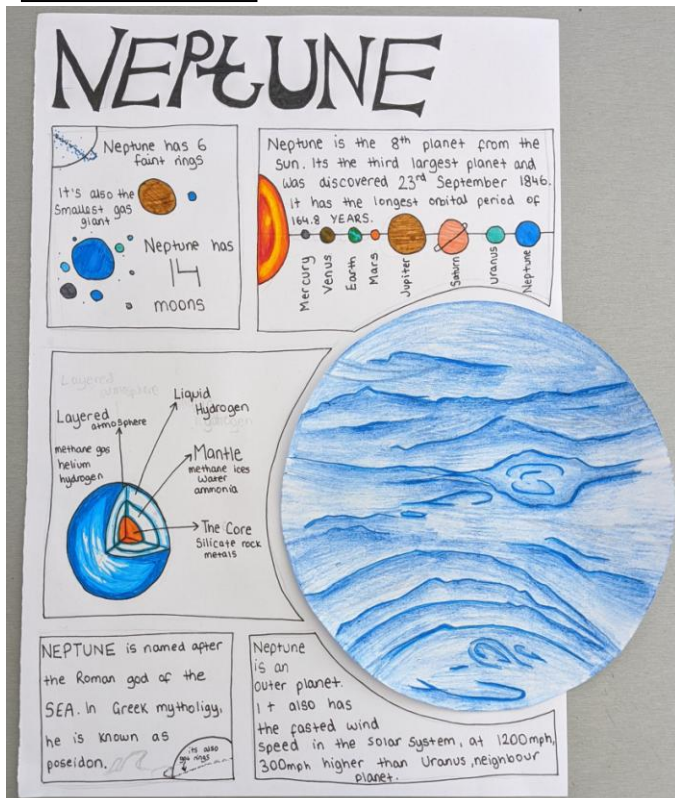 NEPTUNE
Neptune has 6
faint rings
It's also the
Smallest gas
giant
Neptune has
14
moons
Neptune is the 8th planet from the
sun. Its the third largest planet and
was discovered 23rd September 1846.
it has the longest orbital period of
164.8 YEARS.
Mercury
Venus
Earth
Mars
Jupiter
Saturn
Uranus
Neptune
Layered
atmosphere
methane gas
helium
hydrogen
Liquid
Hydrogen
Mantle
methane ices
water
ammonia
The Core
Silicate rock
metals
NEPTUNE is named after
the Roman god of the
SEA. In Greek mythology,
he is known as
poseidon.
its also
rings
Neptune
is an
outer planet.
It also has
the fasted wind
speed in the solar system, at 1200mph,
300mph higher than Uranus, neighbour
planet.